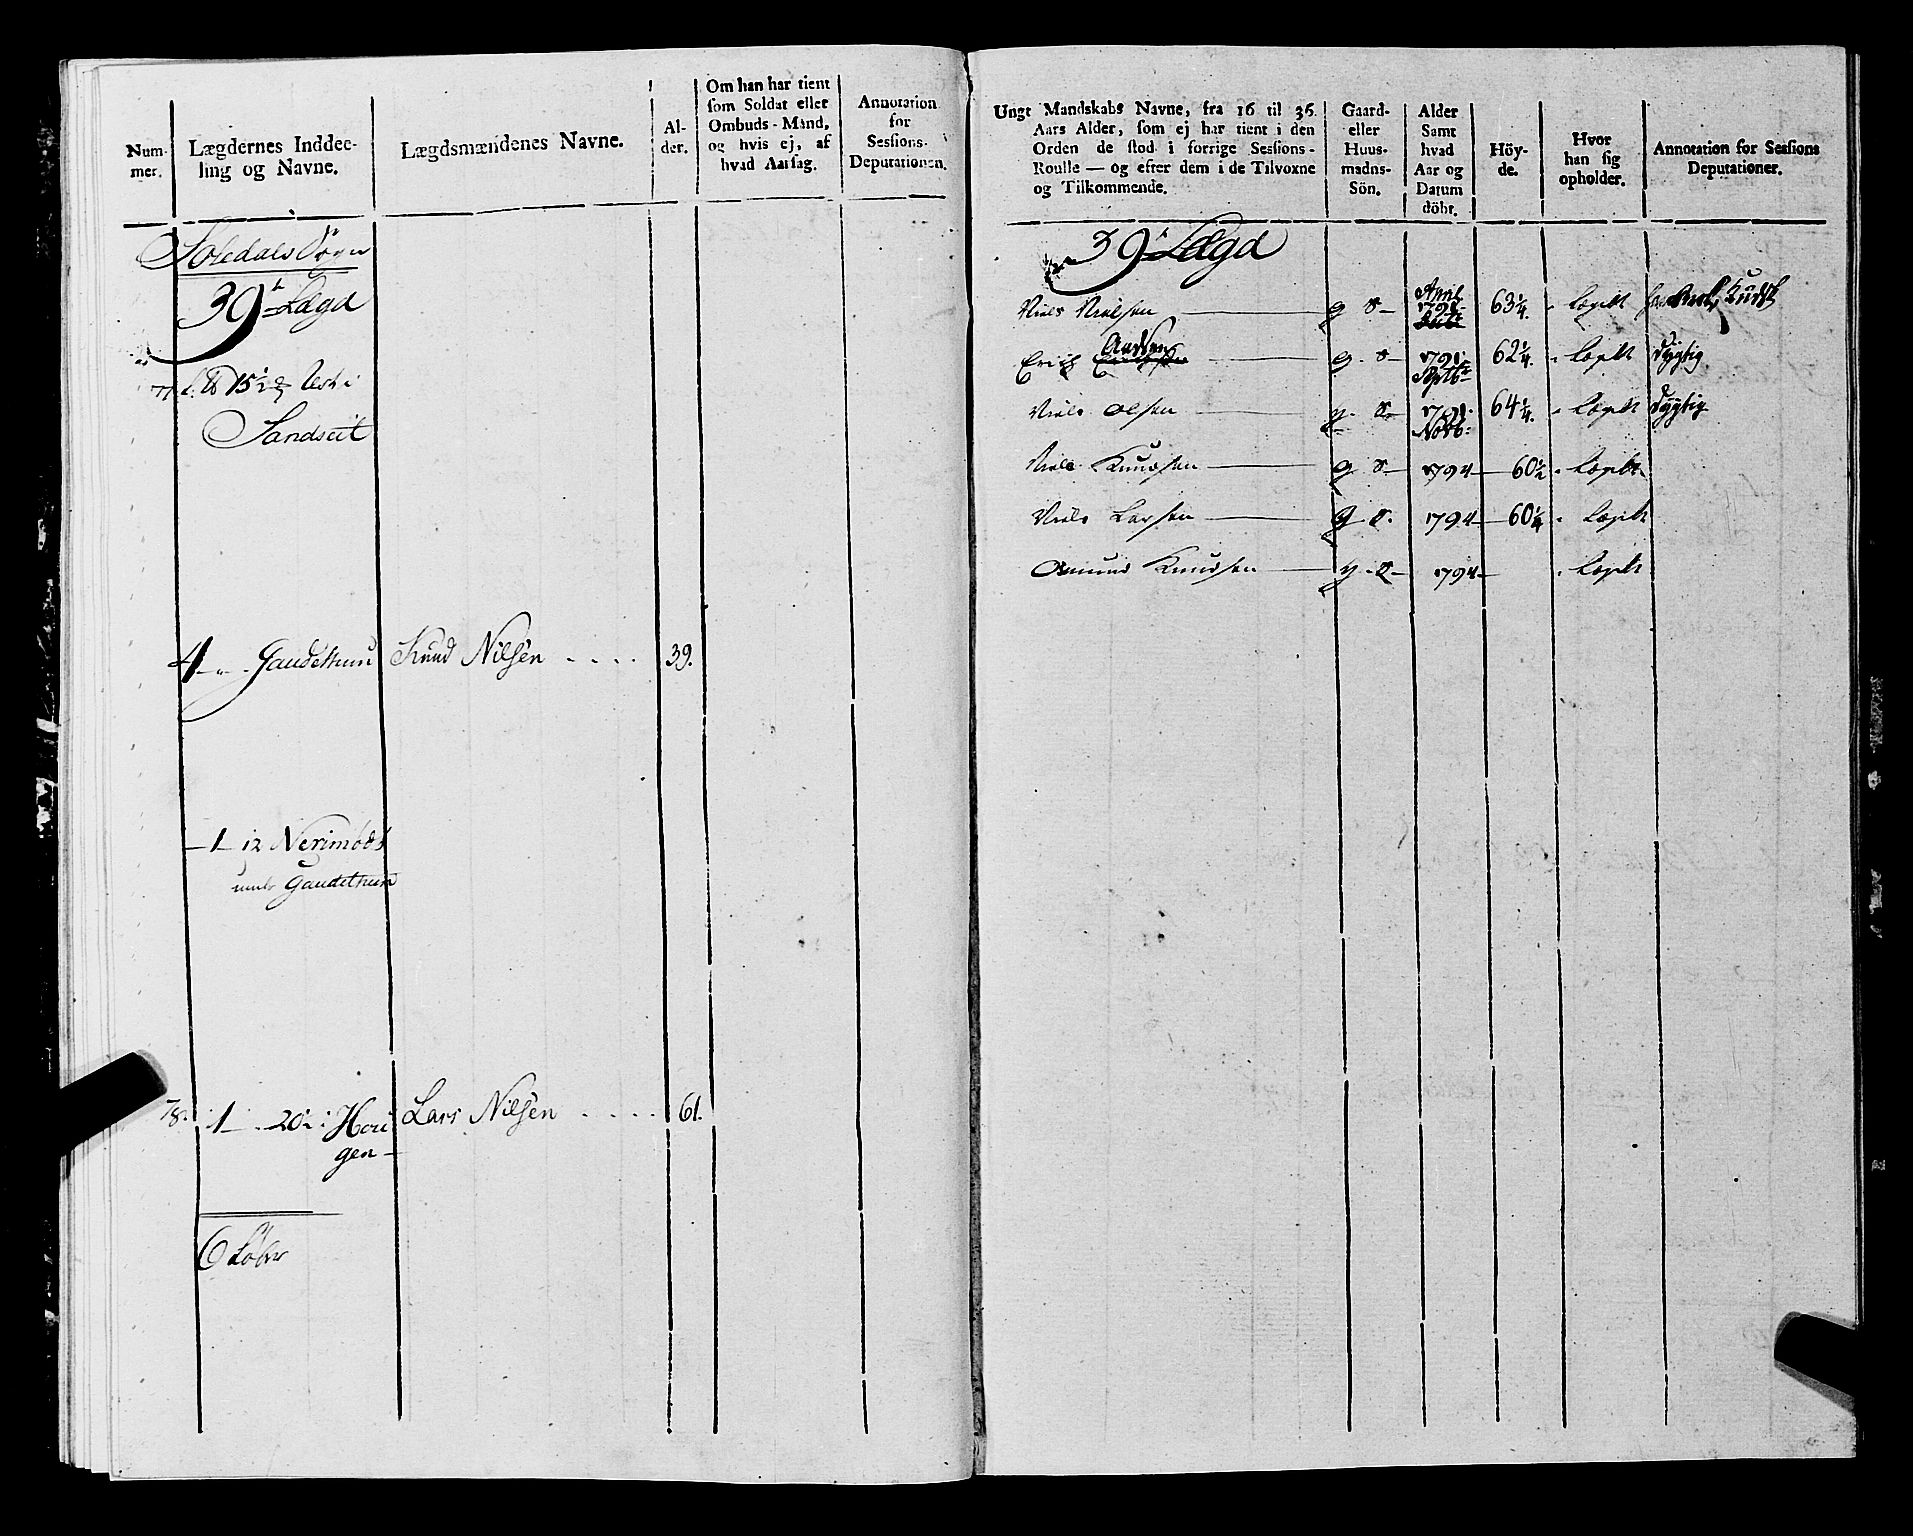 Num-
mer.
Lægdernes Inddee-
ling og Navne.
Lægdsmændenes Navne.
Al-
der.
Om han har tient
som Soldat eller
Ombuds-Mand,
og hvis ej, af
hvad Aarsag.
Annotation
for
Sessions-
Deputationen.
39te Lægd
Sandseit
4 Gaudethun Knud Nilsen 39.
1 12 Nerimods
Gaudethun
78. 1 20 i Hou
gen
Lars Nilsen 61.
6 Løbr
Ungt Mandskabs Navne, fra 16 til 36
Aars Alder, som ej har tient i den
Orden de stod i forrige Sessions-
Roulle — og efter dem i de Tilvoxne
og Tilkommende.
Gaard-
eller
Huus-
madns-
Sön.
Alder
Samt
hvad
Aar og
Datum
döbt.
Höy-
de.
Hvor
han sig
opholder.
Annotation for Sessions
Deputationer.
39te Lægd
Niels Nielsen g S April 1791 63 1/4 Lægdt
Erich g S 1791 Septb 62 1/4 Lægdt Dygtig
Niels Olsen g S 1791 Novb 64 1/4 Lægdt Dygtig
Niels Knudsen g S 1794 60 1/2 Lægdt
Niels Larsen g S 1794 60 1/4 Lægdt
Amund Knudsen g S 1794 Lægdt